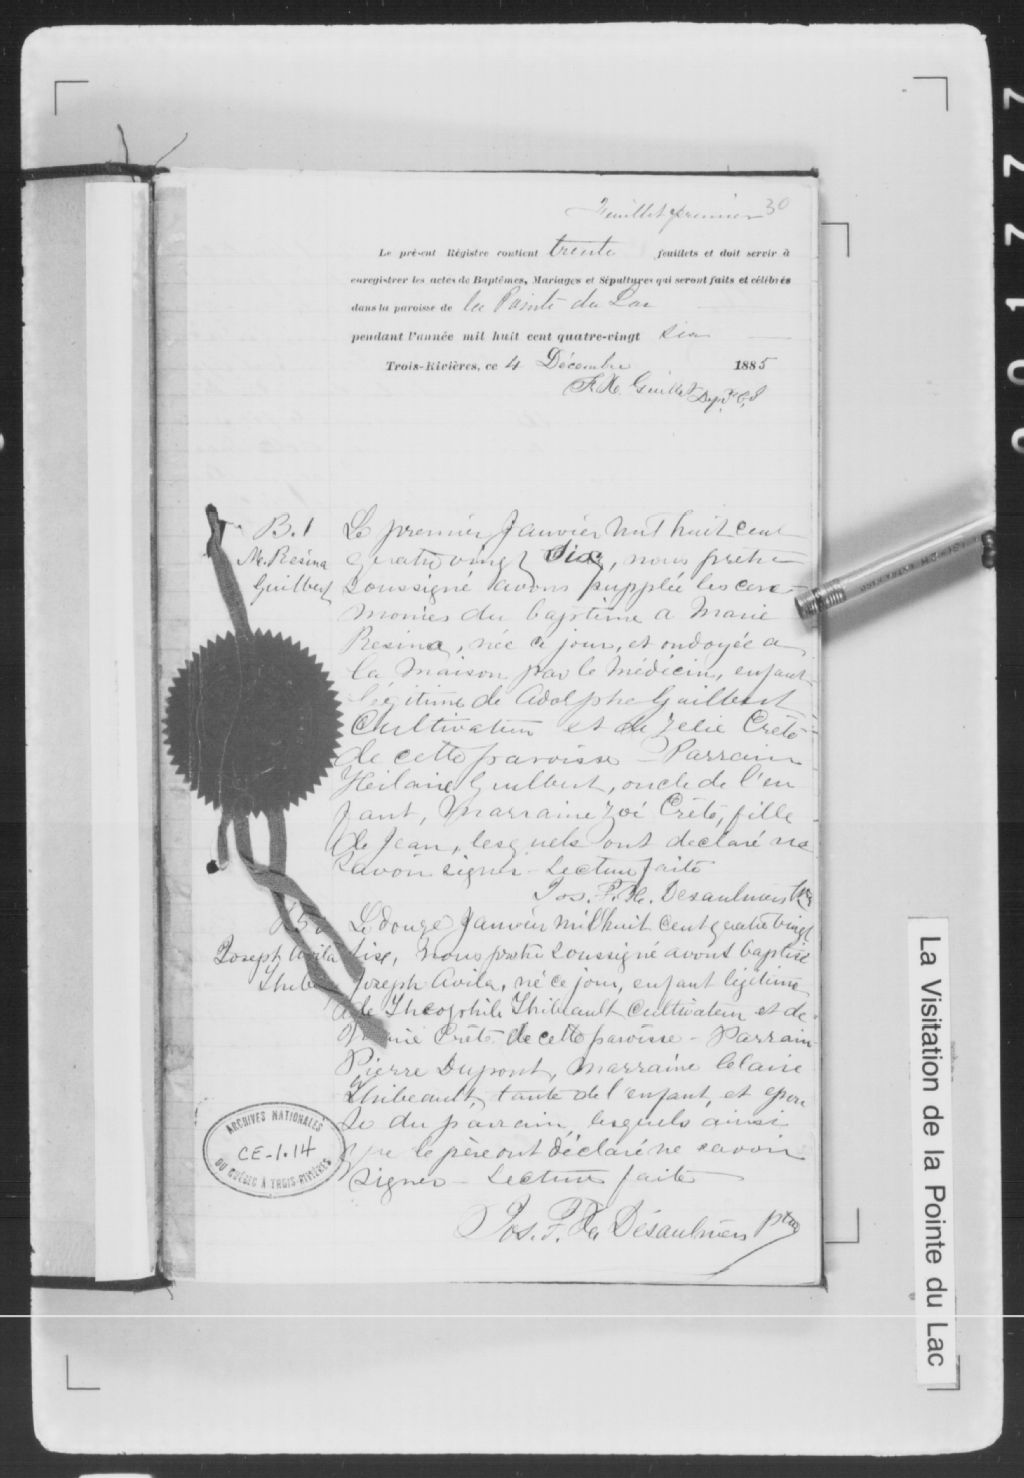 Feuillet premier 30
Le présent Régistre contient trente feuillets et doit servir à
enregistrer les actes de Baptêmes, Mariages et Sépultures qui seront faits et célébrés
dans la paroisse de la Pointe du Lac
pendant l'année mil huit cent quatre-vingt six
Trois-Rivières, ce 4 Décembre 1885
F. X. Guillet Dep. P. C. S
B. 1
M. Resina
Guilbert
Le premier Janvier mil huit cent
quatre vingt six, nous prêtre
soussigné avons supplée les cere-
monies du baptême a Marie
Resina, née ce jour, et ondoyée a
la maison par le Médecin, enfant
légitime de Adolphe Guilbert
Cultivateur et de Zelie Crête
de cette paroisse - Parrain
Heilaire Guilbert, oncle de l'en
fant, Marraine Zoé Crête, fille
de Jean, lesquels ont declaré ne
savoir signer - Lecture faite
Jos. F. X. Desaulniers Ptre
Joseph Avila
Thibe
Le douze Janvier mil huit cent quatre vingt
six, nous prêtre soussigné avons baptisé
Joseph Avila, né ce jour, enfant légitime
de Theophile Thibeault Cultivateur et de
Crête de cette paroisse - Parrain
Pierre Dupont, marraine
Thibeault, tante de l'enfant, et epou
se du parrain, lesquels ainsi
que le père ont déclaré ne savoir
signer - Lecture faite
Jos. F. X. Désaulniers ptre
ARCHIVES NATIONALES
CE-1.14
DU QUÉBEC À TROIS-RIVIÈRES
La Visitation de la Pointe du Lac